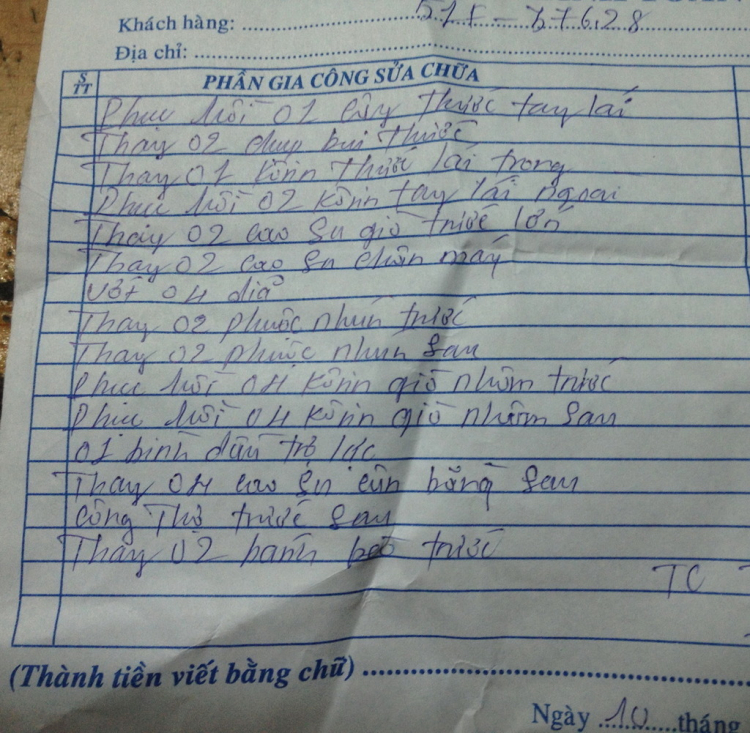 Khách hàng: 51F - 376.28
Địa chỉ:
S TT PHẦN GIA CÔNG SỬA CHỮA
Phuc hồi 01 cây thước tay lái
Thay 02 chup bui thước
Thay 01 Rôtin thước lái trong
Phuc hồi 02 Rôtin tay lái ngoai
Thay 02 cao su giò trước lớn
Thay 02 cao su chân máy
Vớt 04 dĩa
Thay 02 phuộc nhún trước
Thay 02 phuộc nhun sau
Phuc hồi 04 Rôtin giò nhôm trước
Phuc hồi 04 Rôtin giò nhôm sau
01 binh dầu trợ lực
Thay 04 cao su cân bằng sau
công Thợ trước sau
Thay 02 banh bố trước
TC
(Thành tiền viết bằng chữ)
Ngày 10 tháng